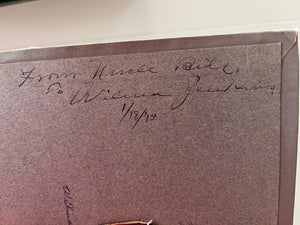 From Uncle Bill,
To Wilma Jenkins,
1/18/15